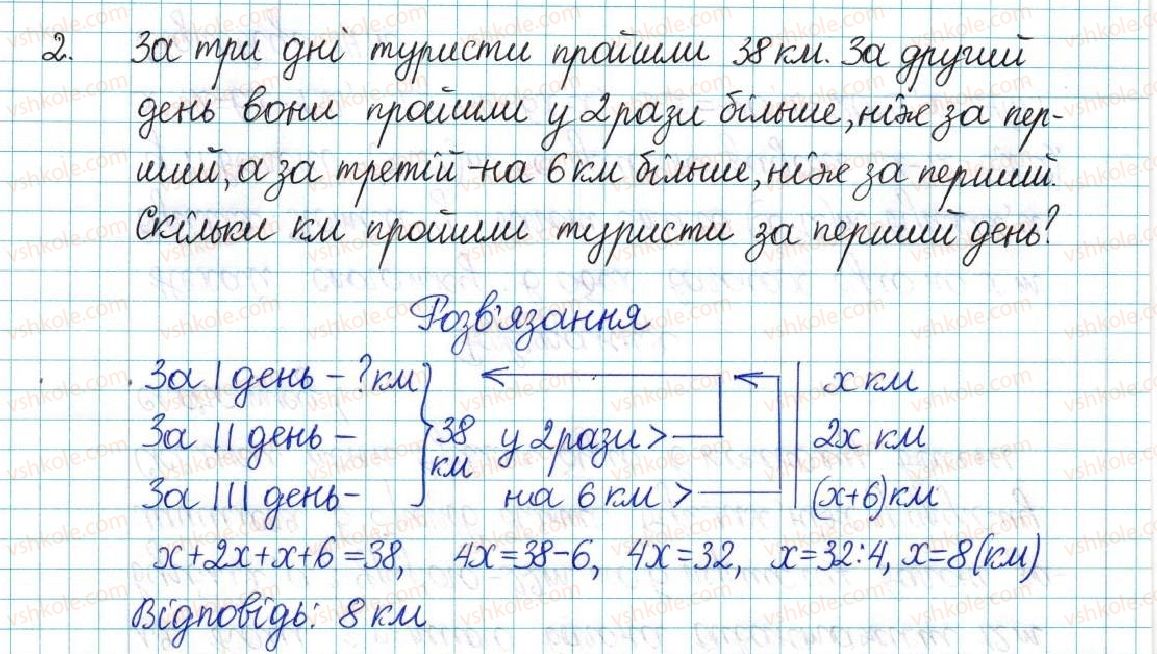 2. За три дні туристи пройшли 38 км. За другий
день вони пройшли у 2 рази більше, ніж за пер-
ший, а за третій - на 6 км більше, ніж за перший.
Скільки км пройшли туристи за перший день?
Розв'язання
За I день - ? км x км
За II день - 38 км у 2 рази > 2x км
За III день - на 6 км > (x+6) км
x+2x+x+6=38, 4x=38-6, 4x=32, x=32:4, x=8(км)
Відповідь: 8 км